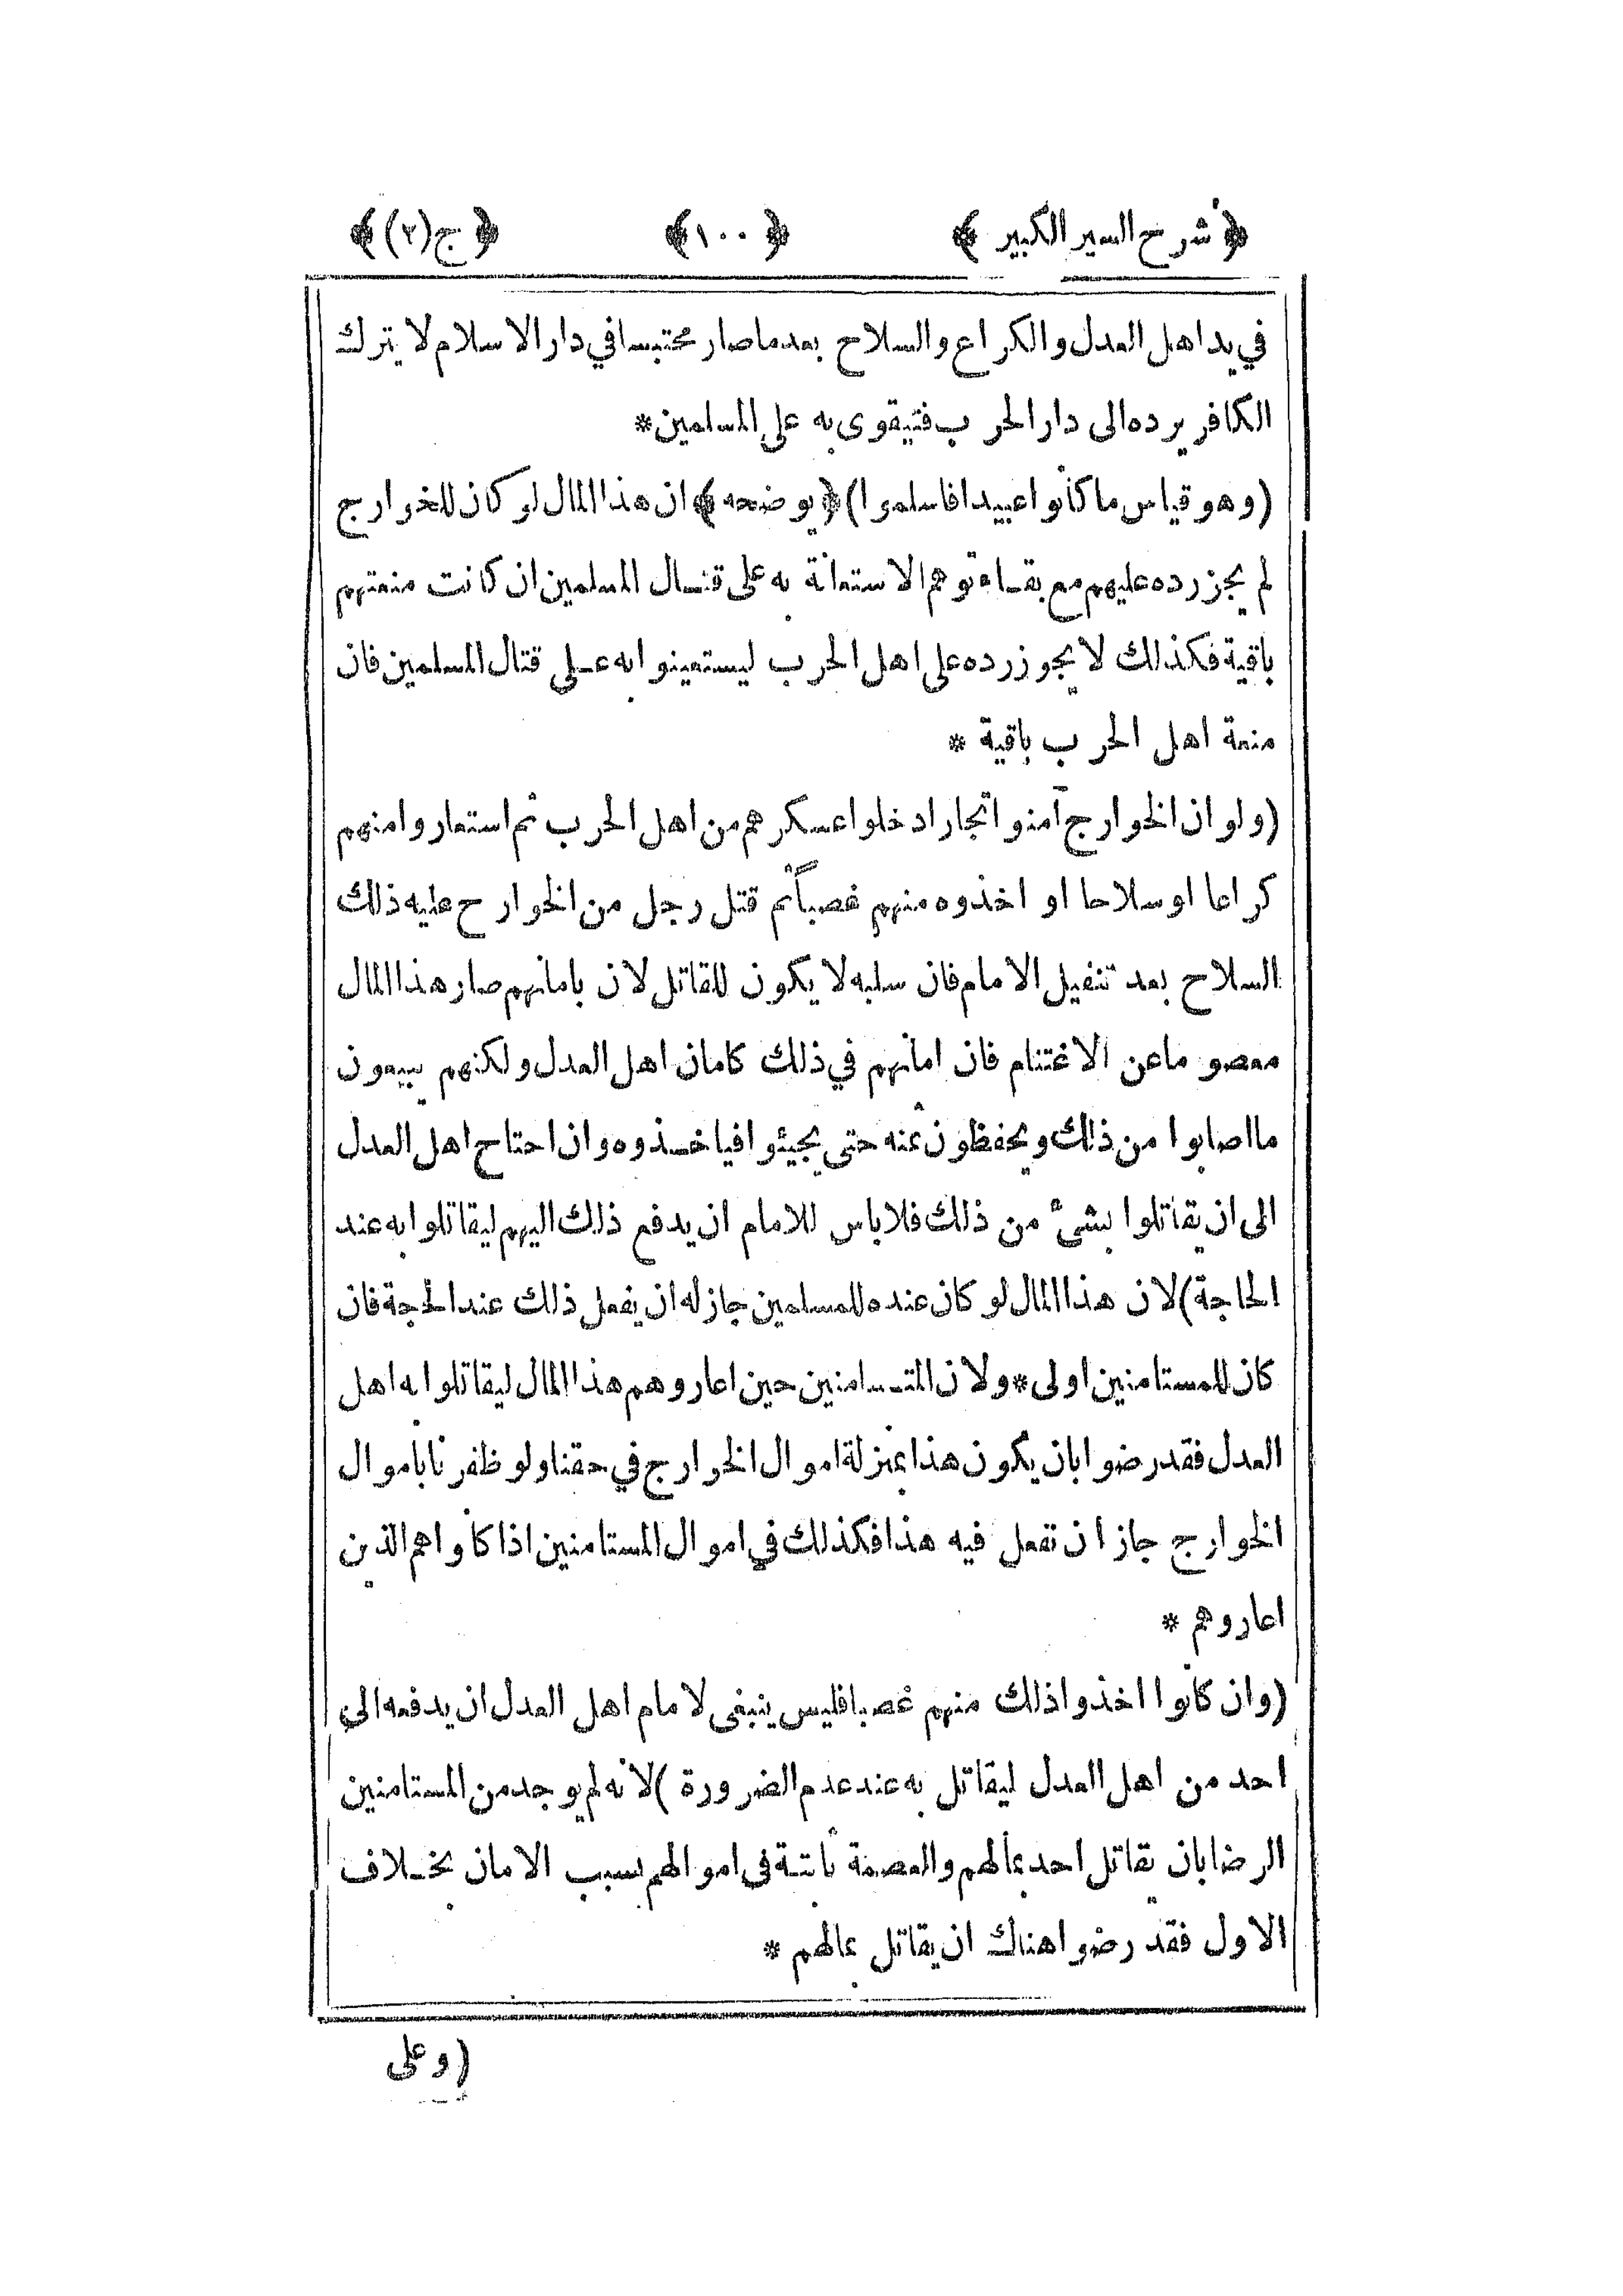 ﴿ شرح السير الكبير ﴾ ﴿ ١٠٠ ﴾ ﴿ ج (٢) ﴾
في يد اهل العدل والكراع والسلاح بعد ما صار محتبسا في دار الاسلام لا يترك
الكافر يرده الى دار الحرب فتيقوى به على المسلمين*
(وهو قياس ما كانوا عبيدا فاسلموا) ﴿ يوضحه ﴾ ان هذا المال لو كان للخوارج
لم يجز رده عليهم مع بقاء توهم الاستعانة به على قتال المسلمين ان كانت منعتهم
باقية فكذلك لا يجوز رده على اهل الحرب ليستعينوا به على قتال المسلمين فان
منعة اهل الحرب باقية *
(ولو ان الخوارج آمنوا تجارا دخلوا عسكرهم من اهل الحرب ثم استعاروا منهم
كراعا او سلاحا او اخذوه منهم غصباً ثم قتل رجل من الخوارح عليه ذلك
السلاح بعد تنفيل الامام فان سلبه لا يكون للقاتل لان بامانهم صار هذا المال
معصوما عن الاغتنام فان امانهم في ذلك كامان اهل العدل ولكنهم يبيعون
ما اصابوا من ذلك ويحفظون ثمنه حتى يجيئوا فياخذوه وان احتاح اهل العدل
الى ان يقاتلوا بشئ من ذلك فلا باس للامام ان يدفع ذلك اليهم ليقاتلوا به عند
الحاجة) لان هذا المال لو كان عنده للمسلمين جاز له ان يفعل ذلك عند الحجة فان
كان للمستامنين اولى * ولان المتسامنين حين اعاروهم هذا المال ليقاتلوا به اهل
العدل فقد رضوا بان يكون هذا بمنزلة اموال الخوارج في حقنا ولو ظفرنا باموال
الخوارج جاز ان تفعل فيه هذا فكذلك في اموال المستامنين اذا كانوا هم الذين
اعاروهم *
(وان كانوا اخذوا ذلك منهم غصبا فليس ينبغى لامام اهل العدل ان يدفعه الى
احد من اهل العدل ليقاتل به عند عدم الضرورة) لانه لم يوجد من المستامنين
الرضا بان يقاتل احد بمالهم والعصمة ثابتة فى اموالهم بسبب الامان بخلاف
الاول فقد رضوا هناك ان يقاتل بمالهم *
(وعلى